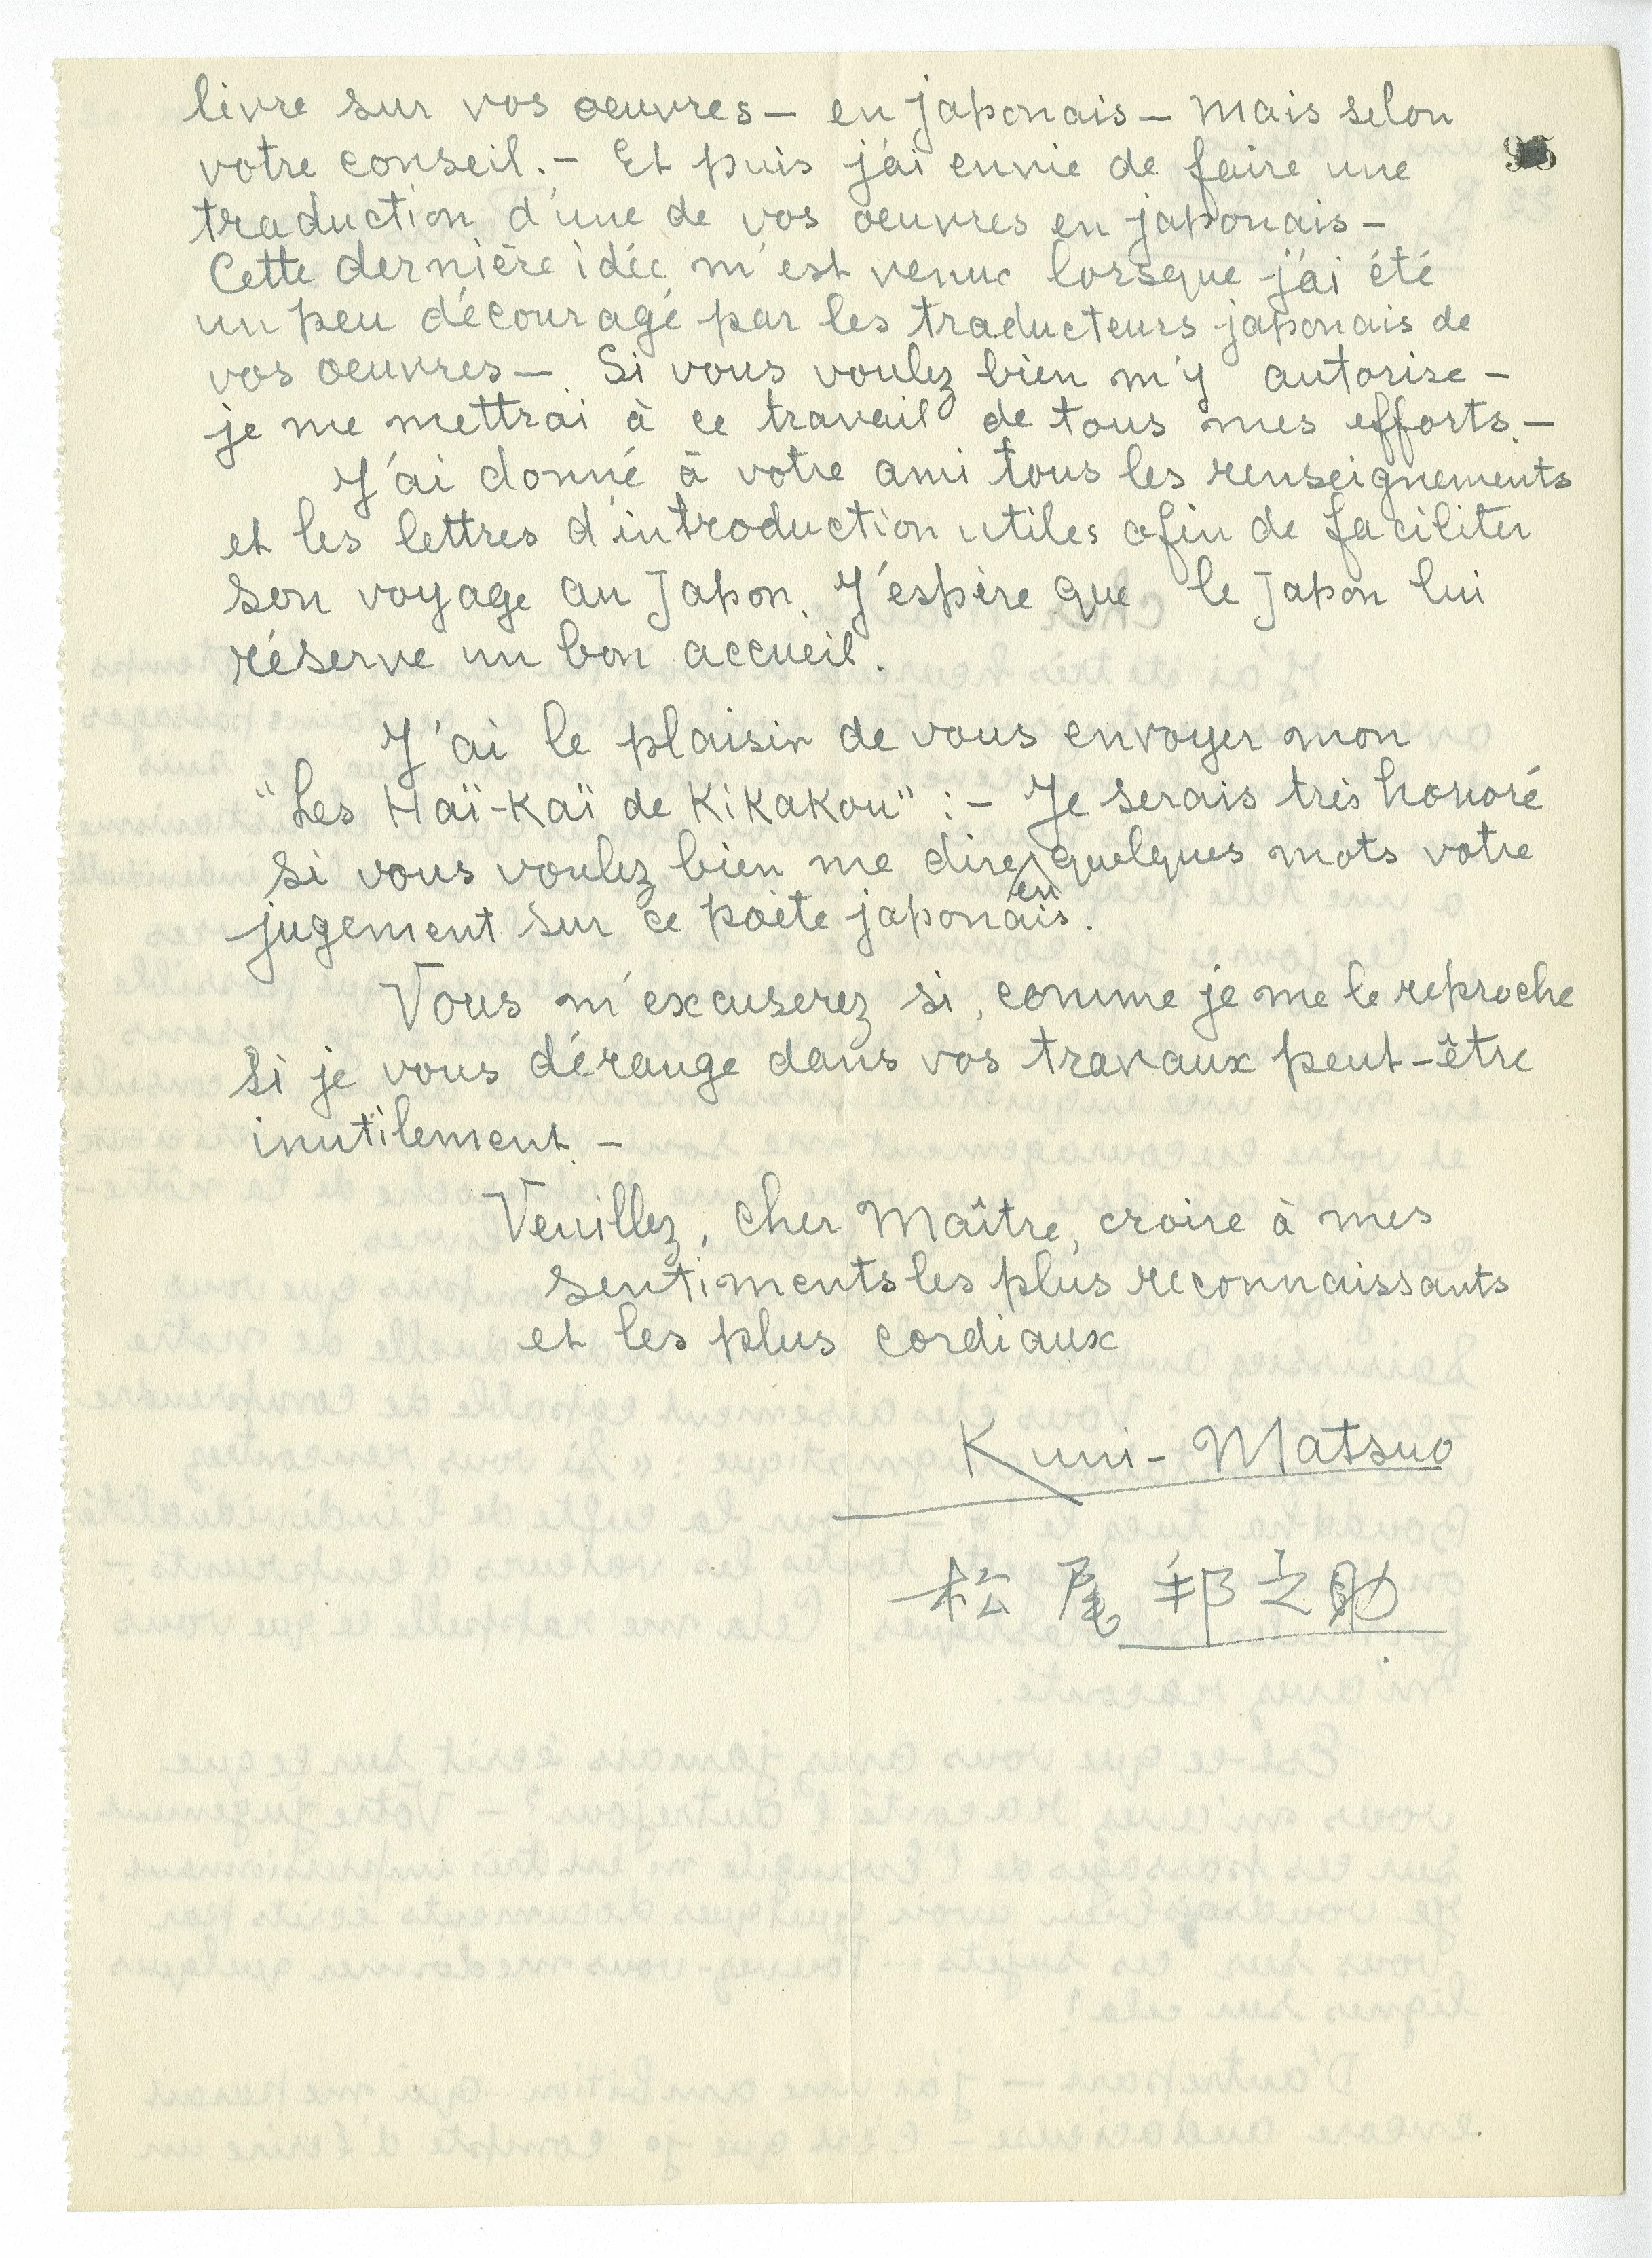 livre sur vos oeuvres — en japonais — mais selon
95
votre conseil. — Et puis j'ai envie de faire une
traduction d'une de vos oeuvres en japonais —
Cette dernière idée m'est venue lorsque j'ai été
un peu découragé par les traducteurs japonais de
vos oeuvres —. Si vous voulez bien m'y autorise —
je me mettrai à ce travail de tous mes efforts. —
J'ai donné à votre ami tous les renseignements
et les lettres d'introduction utiles afin de faciliter
son voyage au Japon. J'espère que le Japon lui
réserve un bon accueil.
J'ai le plaisir de vous envoyer mon
"Les Haï-Kaï de Kikakou" : — Je serais très honoré
si vous voulez bien me dire en quelques mots votre
jugement sur ce poète japonais.
Vous m'excuserez si, comme je me le reproche
si je vous dérange dans vos travaux peut-être
inutilement. —
Veuillez, cher Maître, croire à mes
sentiments les plus reconnaissants
et les plus cordiaux
Kuni-Matsuo
松尾邦之助